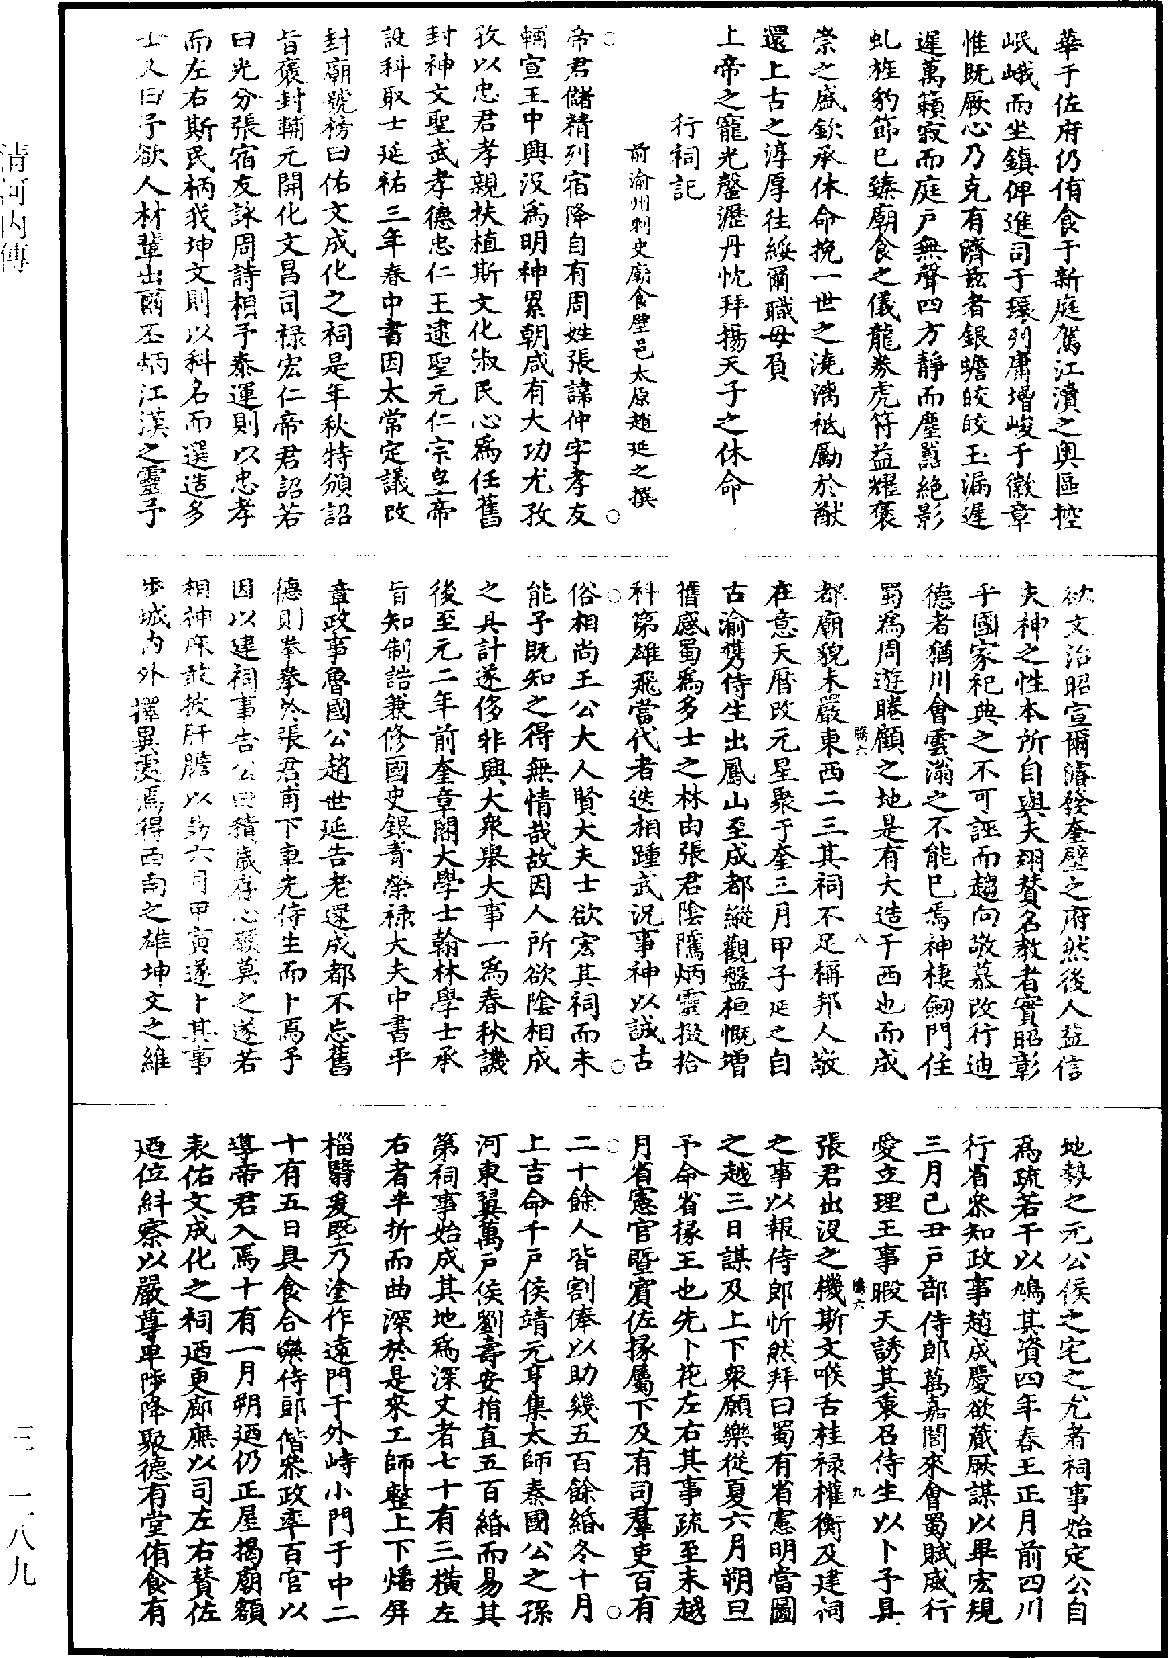 華于佐府仍侑食于新庭駕江瀆之奧區控
岷峨而坐鎮俾進司于環列庸增峻于徽章
惟既厥心乃克有濟兹者銀蟾皎皎玉漏遲
遲萬籟寂而庭戶無聲四方靜而塵囂絕影
虬旌豹節已臻廟食之儀龍券虎符益耀褒
崇之盛欽承休命挽一世之澆漓祗勵於猷
還上古之淳厚往綏爾職毋負
上帝之寵光罄瀝丹忱拜揚天子之休命
行祠記
前渝州刺史廟食璧邑太原趙延之撰
帝君儲精列宿降自有周姓張諱仲字孝友
輔宣王中興沒為明神累朝咸有大功尤孜
孜以忠君孝親扶植斯文化淑民心為任舊
封神文聖武孝德忠仁王逮聖元仁宗皇帝
設科取士延祐三年春中書因太常定議改
封廟號榜曰佑文成化之祠是年秋特頒詔
旨褒封輔元開化文昌司祿宏仁帝君詔若
曰光分張宿友詠周詩相予泰運則以忠孝
而左右斯民柄我坤文則以科名而選造多
士又曰予欲人材輩出爾丕炳江漢之靈予
欲文治昭宣爾濬發奎壁之府然後人益信
夫神之性本所自與夫翊贊名教者實昭彰
于國家祀典之不可誣而趨向敬慕改行迪
德者猶川會雲滃之不能已焉神棲劒門住
蜀為周遊睠顧之地是有大造于西也而成
都廟貌未嚴東西二三其祠不足稱邦人敬
在意天曆改元星聚于奎三月甲子延之自
古渝携侍生出鳳山至成都縱觀盤桓慨增
舊感蜀為多士之林由張君陰隲炳靈掇拾
科第雄飛當代者迭相踵武況事神以誠古
俗相尚王公大人賢大夫士欲宏其祠而未
能予既知之得無情哉故因人所欲陰相成
之具計遂侈非興大衆舉大事一為春秋譏
後至元二年前奎章閣大學士翰林學士承
旨知制誥兼修國史銀青榮祿大夫中書平
章政事魯國公趙世延告老還成都不忘舊
德則拳拳於張君甫下車先侍生而卜焉予
因以建祠事告公曰積歲存心獲莫之遂若
相神庥敢披肝膽以夏六月甲寅遂卜其事
步城內外擇異處焉得西南之雄坤文之維
地勢之元公侯之宅之尤者祠事始定公自
為疏若干以鳩其資四年春王正月前四川
行省叅知政事趙成慶欲蕆厥謀以畢宏規
三月己丑戶部侍郎萬嘉閭來會蜀賦咸行
愛立理王事暇天誘其衷召侍生以卜予具
張君出沒之機斯文喉舌桂祿權衡及建祠
之事以報侍郎忻然拜曰蜀有省憲明當圖
之越三日謀及上下衆願樂從夏六月朔旦
予命省掾王也先卜花左右其事疏至末越
月省憲官暨賓佐掾屬下及有司羣吏百有
二十餘人皆割俸以助幾五百餘緡冬十月
上吉命千戶侯靖元亨集太師秦國公之孫
河東翼萬戶侯劉壽安捐直五百緡而易其
第祠事始成其地為深丈者七十有三橫左
右者半折而曲深於是來工師整上下燔屏
椔翳爰塈乃塗作遠門于外峙小門于中二
十有五日具食合樂侍郎偕叅政率百官以
導帝君入焉十有一月朔迺仍正屋揭廟額
表佑文成化之祠迺更廊廡以司左右贊佐
迺位糾察以嚴尊卑陟降聚德有堂侑食有
清河內傳
三一二八九